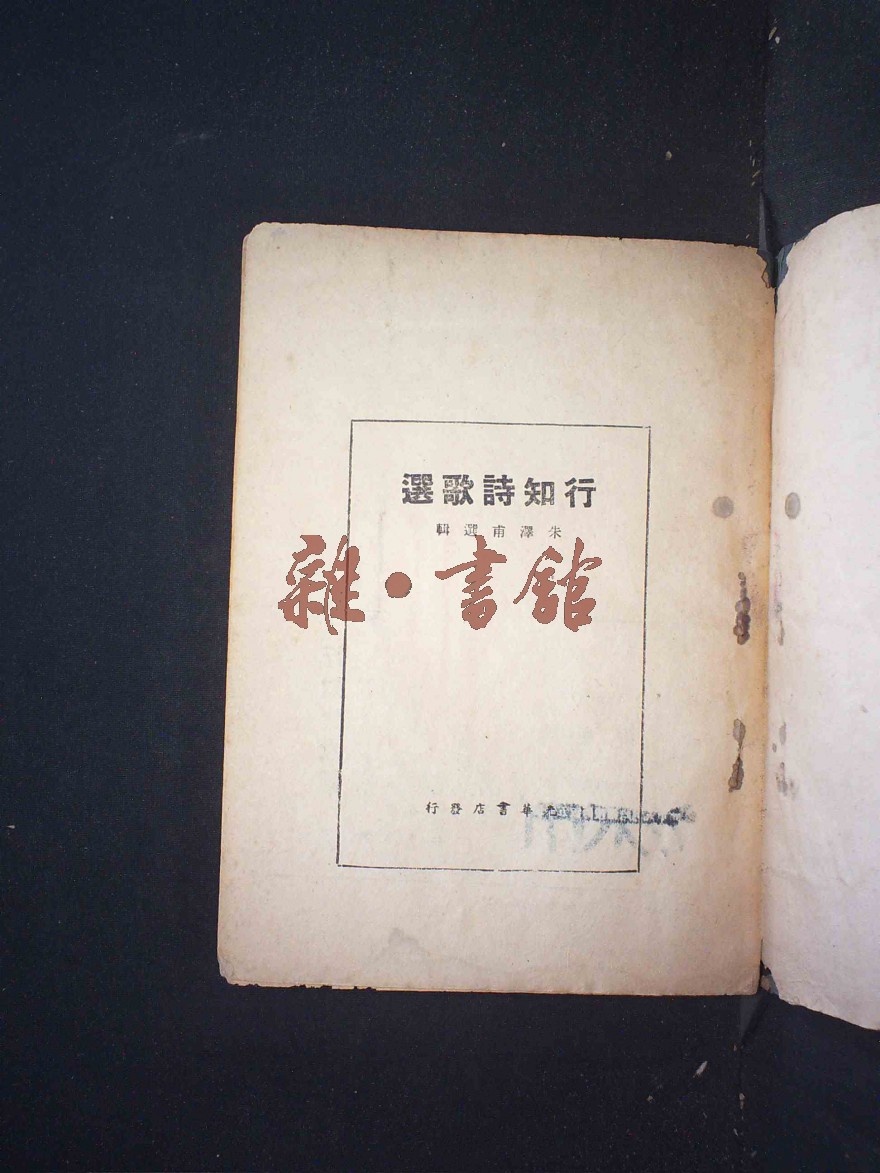 行知詩歌選
朱澤甫選輯
雜·書館
光華書店發行